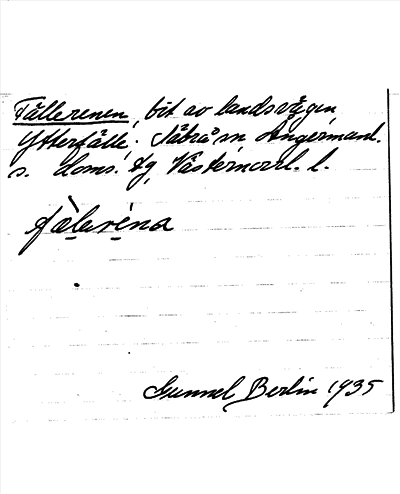 Fällerenen, bit av landsvägen
Ytterfälle, Nätra sn Ångermanl.
s. doms. dg, Västernorrl. l.
fä̀leréna
Gunnel Berlin 1935